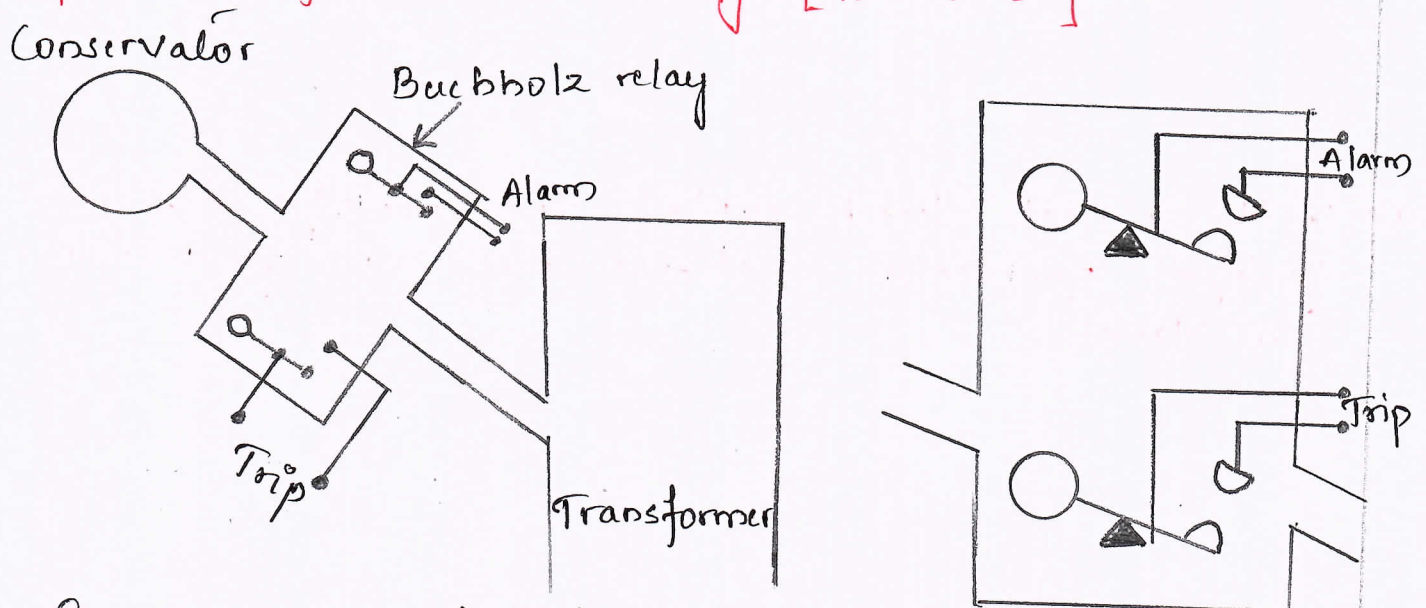 Conservator
Buchholz relay
Alarm
Trip
Transformer
Alarm
Trip